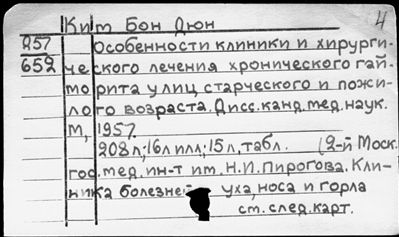 4
Ким Бон Дюн
Д57
652
Особенности клиники и хирурги-
ческого лечения хронического гай-
морита у лиц старческого и пожи-
лого возраста. Дисс. канд. мед. наук.
М, 1957.
208 л; 16 л илл; 15 л, табл. (2-й Моск.
гос. мед. ин-т им. Н.И. Пирогова. Кли-
ника болезней уха, носа и горла
см. след. карт.